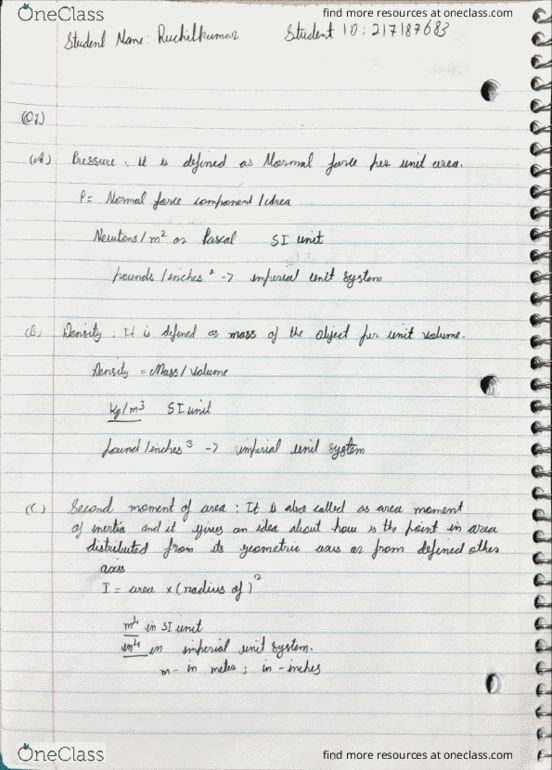 OneClass
find more resources at oneclass.com
Student Name: Ruchilkumar Student ID: 217187683
(Q1)
(A) Pressure: It is defined as Normal force per unit area.
P= Normal force component / Area
Newtons/m² or Pascal SI unit
pounds/inches² -> imperial unit system
(B) Density: It is defined as mass of the object per unit volume.
Density = Mass/volume
kg/m³ SI unit
pound/inches³ -> imperial unit system
(C) Second moment of area: It is also called as area moment
of inertia and it gives an idea about how is the point in area
distributed from its geometric axis or from defined other
axis
I = area x (radius of)²
m⁴ in SI unit
in⁴ in imperial unit system.
m - in meter; in - inches
OneClass
find more resources at oneclass.com